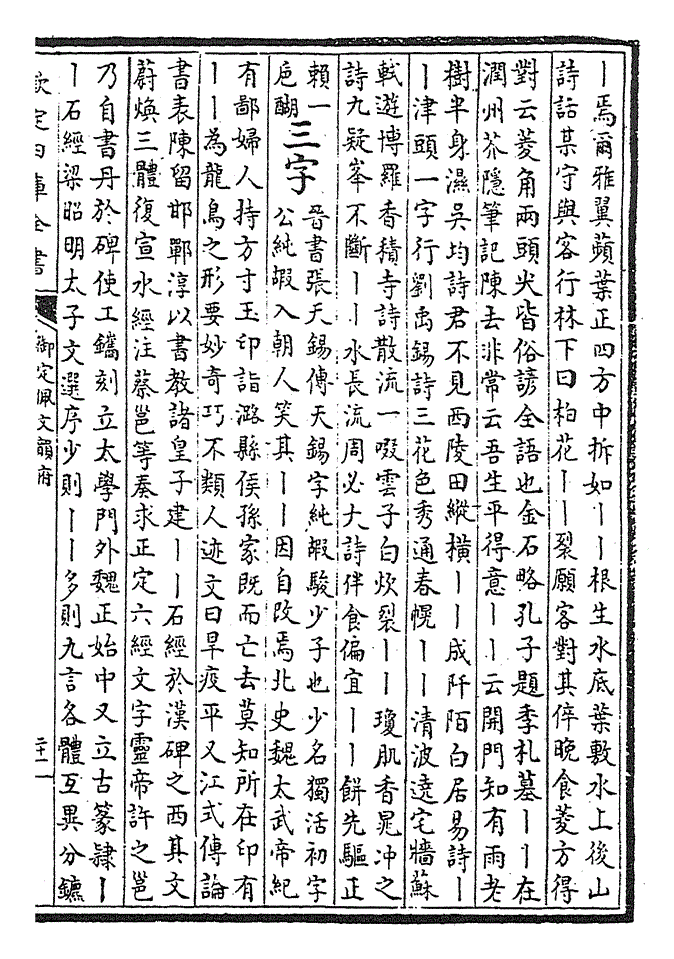 ｜焉爾雅翼蘋葉正四方中拆如｜｜根生水底葉敷水上後山
詩話某守與客行林下曰柏花｜｜裂願客對其倅晚食菱方得
對云菱角兩頭尖皆俗諺全語也金石略孔子題季札墓｜｜在
潤州芥隱筆記陳去非常云吾生平得意｜｜云開門知有雨老
樹半身濕吳均詩君不見西陵田縱橫｜｜成阡陌白居易詩｜
｜津頭一字行劉禹錫詩三花色秀通春幌｜｜清波遶宅牆蘇
軾遊博羅香積寺詩散流一啜雲子白炊裂｜｜瓊肌香晁冲之
詩九疑峯不斷｜｜水長流周必大詩伴食偏宜｜｜餅先驅正
賴一
巵醐
三字
晉書張天錫傳天錫字純嘏駿少子也少名獨活初字
公純嘏入朝人笑其｜｜因自改焉北史魏太武帝紀
有鄙婦人持方寸玉印詣潞縣侯孫家既而亡去莫知所在印有
｜｜為龍鳥之形要妙奇巧不類人迹文曰旱疫平又江式傳論
書表陳留邯鄲淳以書教諸皇子建｜｜石經於漢碑之西其文
蔚煥三體復宣水經注蔡邕等奏求正定六經文字靈帝許之邕
乃自書丹於碑使工鐫刻立太學門外魏正始中又立古篆隸｜
｜石經梁昭明太子文選序少則｜｜多則九言各體互異分鑣
欽定四庫全書
御定佩文韻府
二十一